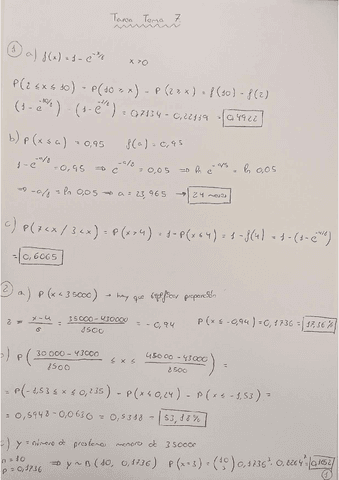 Tarea Tema 7
① a) f(x) = 1 - e^{-x/8}    x>0
P(2 ≤ x ≤ 10) = P(10 ≥ x) - P(2 ≥ x) = f(10) - f(2)
(1 - e^{-10/8}) - (1 - e^{-2/8}) = 0,7134 - 0,22119 = 0,4922
b) P(x ≤ a) = 0,95    f(a) = 0,95
1 - e^{-a/8} = 0,95 ⇒ e^{-a/8} = 0,05 ⇒ ln e^{-a/8} = ln 0,05
⇒ -a/8 = ln 0,05 ⇒ a = 23,965 →
c) P(7 < x / 3 < x) = P(x > 4) = 1 - P(x ≤ 4) = 1 - f(4) = 1 - (1 - e^{-4/8})
= 0,6065
② a) P(x < 35000) → hay que proporción
z = = = -0,94    P(x ≤ -0,94) = 0,1736 =
) P( (30000 - 43000)/8500 ≤ x ≤ (45000 - 43000)/8500 ) =
= P(-1,53 ≤ x ≤ 0,235) = P(x ≤ 0,24) - P(x ≤ -1,53) =
= 0,5948 - 0,0630 = 0,5318 = 53,18%
) y = número de menores de 35000
n = 10
p = 0,1736 ⇒ y ~ (10, 0,1736)    P(x = 3) = (10 3) 0,1736³ · 0,8264⁷ =
①